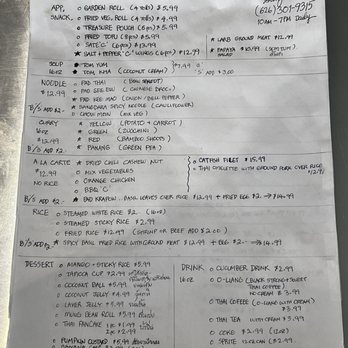 (626) 301-9315
10am - 7PM Daily
APP, o GARDEN ROLL (4 rolls) $5.99
SNACK, o FRIED VEG. ROLL (4 rolls) $4.99
o TREASURE POUCH (6 pcs) $5.99
o FRIED TOFU (8 pcs) $5.99
o SATE'C' (6 pcs) $13.99
★ SALT + PEPPER 'C' WINGS (6 pcs) $12.99
★ LARB GROUND MEAT $12.99
★ PAPAYA $10.99 (SOM TUM)
SOUP ★ TOM YUM $7.99
16oz ★ TOM KHA (COCONUT CREAM) 'S' ADD $3.00
NOODLE o PAD THAI
$12.99 o PAD SEE EW (CHINESE BROC)
o PAD KEE MAO (ONION/BELL PEPPER)
B/S ADD $2.- ★ BANGBARA SPICY NOODLE (CAULIFLOWER)
o CHOW MEIN (MIX VEG)
CURRY ★ YELLOW (POTATO + CARROT)
16oz ★ GREEN (ZUCCHINI)
$12.99 ★ RED (BAMBOO SHOOTS)
B/S ADD $2.- ★ PANANG (GREEN PEA)
A LA CARTE ★ FRIED CHILI CASHEW NUT
$12.99 o MIX VEGETABLES
NO RICE o ORANGE CHICKEN
o BBQ 'C'
o CATFISH FILET $15.99
o THAI OMELETTE WITH GROUND PORK OVER RICE $12.99
B/S ADD $2 ★ PAD KRAPOW.. BASIL LEAVES OVER RICE $12.99 + FRIED EGG $2 -> $14.99
RICE o STEAMED WHITE RICE $2. (16oz)
o STEAMED STICKY RICE $2.99
o FRIED RICE $12.99 (SHRIMP OR BEEF ADD $2.00)
B/S ADD $2.- ★ SPICY BASIL FRIED RICE WITH GROUND MEAT $12.99 + EGG $2.- -> $14.99
DESSERT o MANGO + STICKY RICE $9.99
o TAPIOCA CUP $2.99
o COCONUT BALL $5.99
o COCONUT JELLY $4.99
o LAYER JELLY $5.99
o MUNG BEAN ROLL $5.99
o THAI PANCAKE
o PUMPKIN CUSTARD $5.99
DRINK o CUCUMBER DRINK $2.99
16oz o O-LIANG (BLACK STRONG + SWEET THAI COFFEE)
NO CREAM $3.99
o THAI COFFEE (O-LIANG WITH CREAM) $3.99
o THAI TEA (WITH CREAM) $3.99
o COKE $2.99 (12oz)
o SPRITE 12oz CAN $2.99